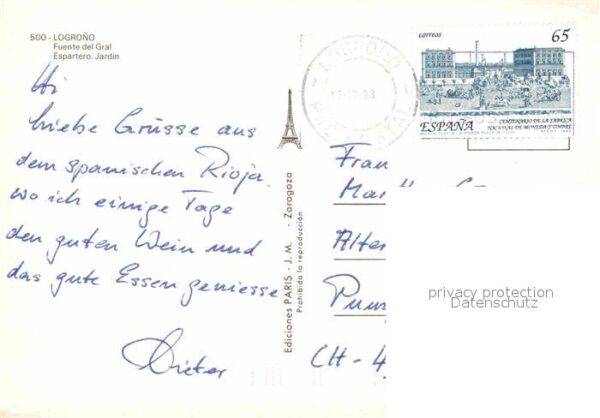 500 - LOGROÑO
Fuente del Gral
Espartero. Jardin
Hi
Liebe Grüsse aus
dem spanischen Rioja,
wo ich einige Tage
den guten Wein und
das gute Essen geniesse
Dieter
Ediciones PARIS - J. M. - Zaragoza
Prohibida la reproducción
LOGROÑO
correos
65
ESPAÑA
CENTENARIO DE LA FABRICA
NACIONAL DE MONEDA Y TIMBRE
Fran
Alte
CH-4
privacy protection
Datenschutz